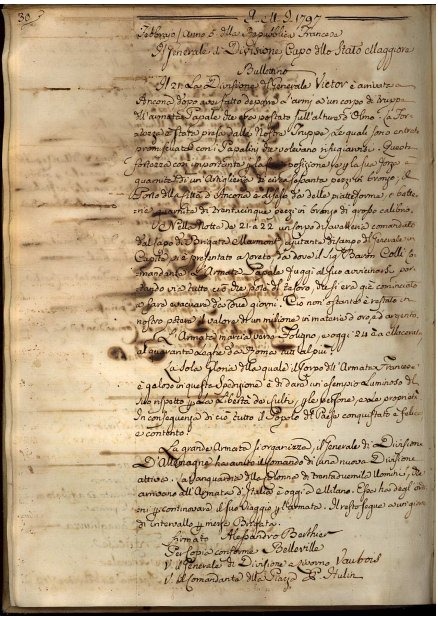 30
A. M. D. 1797
Febbrajo Anno 5. della Repubblica Francese
Il Generale di Divisione, Capo dello Stato Maggiore
Bullettino
Al 21. La Divisione del Generale Victor è arrivata a
Ancona dopo aver fatto deporre l'armi a un corpo di truppa
dell'armata Papale che era postata sull'alture d'
è stata presa dalle Nostre Truppe, le quali sono entrate
coi Papalini che volevano rifugiarvisi. Questa
fortezza è importante per la sua posizione, e la sua forza è
guarnita di un'Artiglieria di circa sessanta pezzi di bronzo. Il
Porto della Città d'Ancona è difeso da delle piattaforme, e batte=
rie guarnite di trentacinque pezzi di bronzo di grosso calibro.
Nella Notte de' 21. a 22. un corpo di cavalleria comandato
dal Capo di Brigata Marmont, ajutante di campo del Generale in
Capite, si è presentato a Loreto da dove il Sig. Baron Colli Co=
mandante l'Armata Papale fuggì al suo avvicinarsi, por=
tando via tutto ciò che poté di tesoro, che si era già cominciato
a fare vacuare da due giorni. Ciò non ostante è restato in
nostro potere il valore di un milione in materie d'oro e d'argento.
L'Armata marcia verso Foligno, e oggi 24. è a Macerata
a quaranta leghe da Roma tutt'al più.
La sola Gloria della quale il Corpo dell'Armata Francese
è geloso in questa Spedizione è di dare un esempio luminoso del
suo rispetto per la libertà de' culti, per le persone, e la proprietà.
In conseguenza di ciò tutto il Popolo di Paese conquistato è felice
e contento.
La grande Armata si organizza, il Generale di Divisione
D'Allemagne ha avuto il comando di una nuova Divisione
attiva. La Vanguardia della Colonna di trentaduemila Uomini, che
arrivano all'Armata d'Italia è oggi a Milano. Essa ha degl'ordi=
ni per continovare il suo Viaggio per l'Armata. Il resto segue a un giorno
di intervallo per mezza Brigata.
Firmato Alessandro Berthier
Per copia conforme Belleville
V. il Generale di Divisione Vaubois
V. il Comandante della Piazza P. Hulin